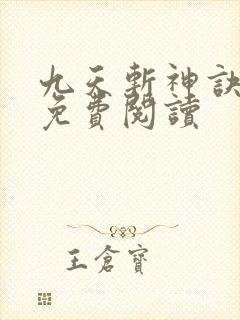 九天斬神訣
免費閱讀
王倉寶